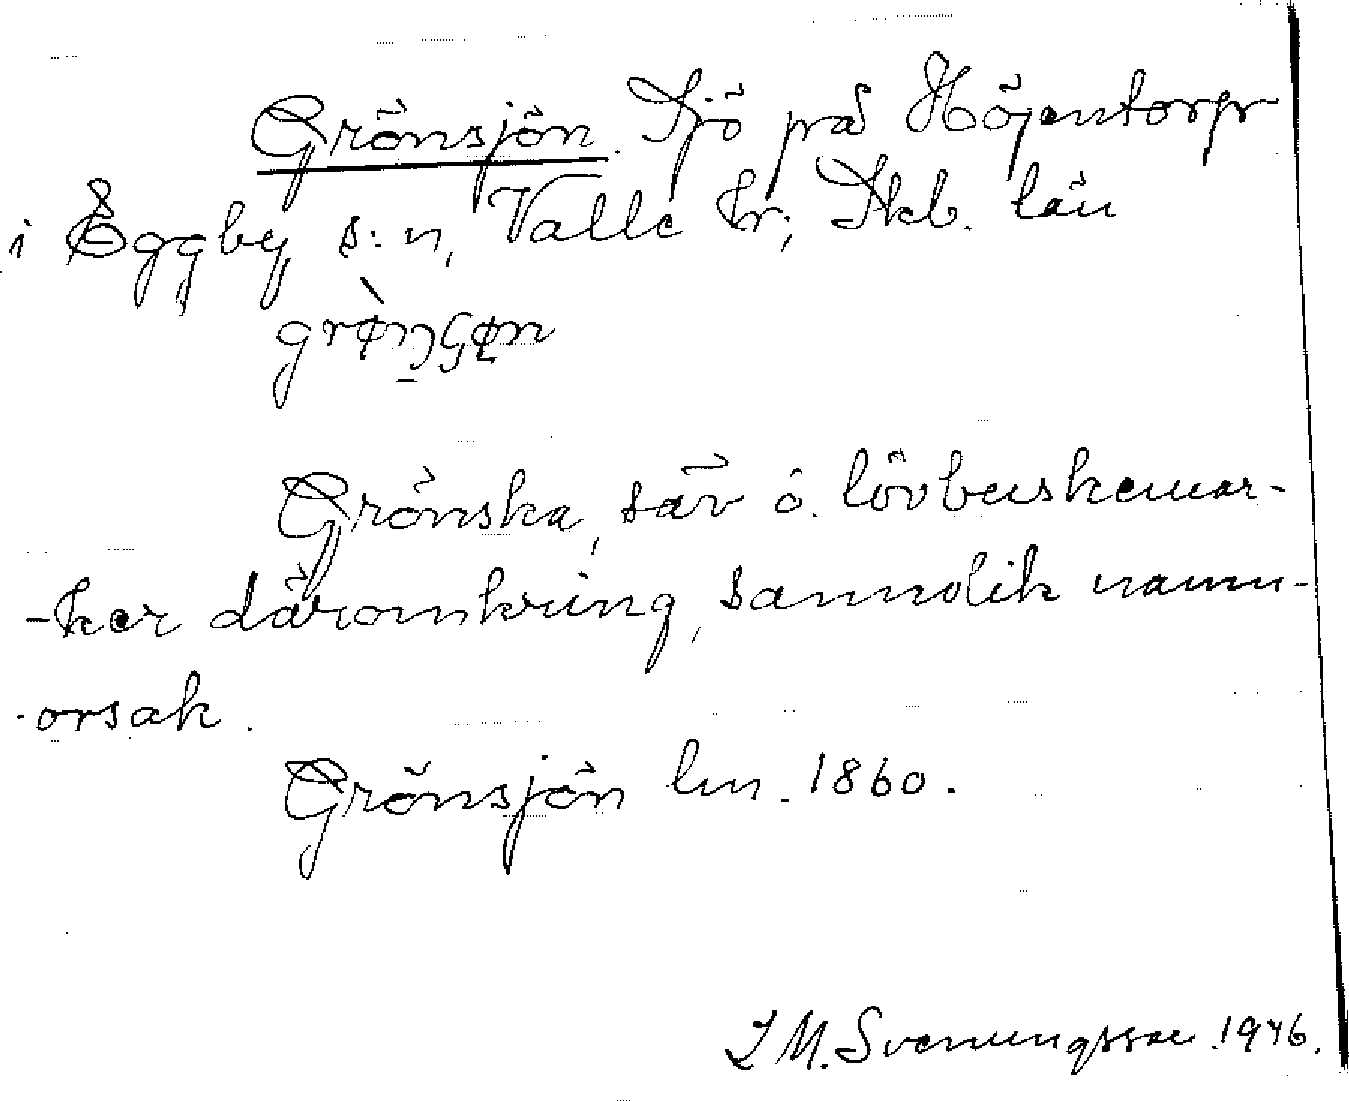 Grönsjön. Sjö på Höjentorp
i Eggby s:n, Valle hr; Skb. län
Grönska, säv o. lövbuskemar-
-ker däromkring, sannolik namn-
-orsak.
Grönsjön lm. 1860.
I M. Svenungsson 1946.